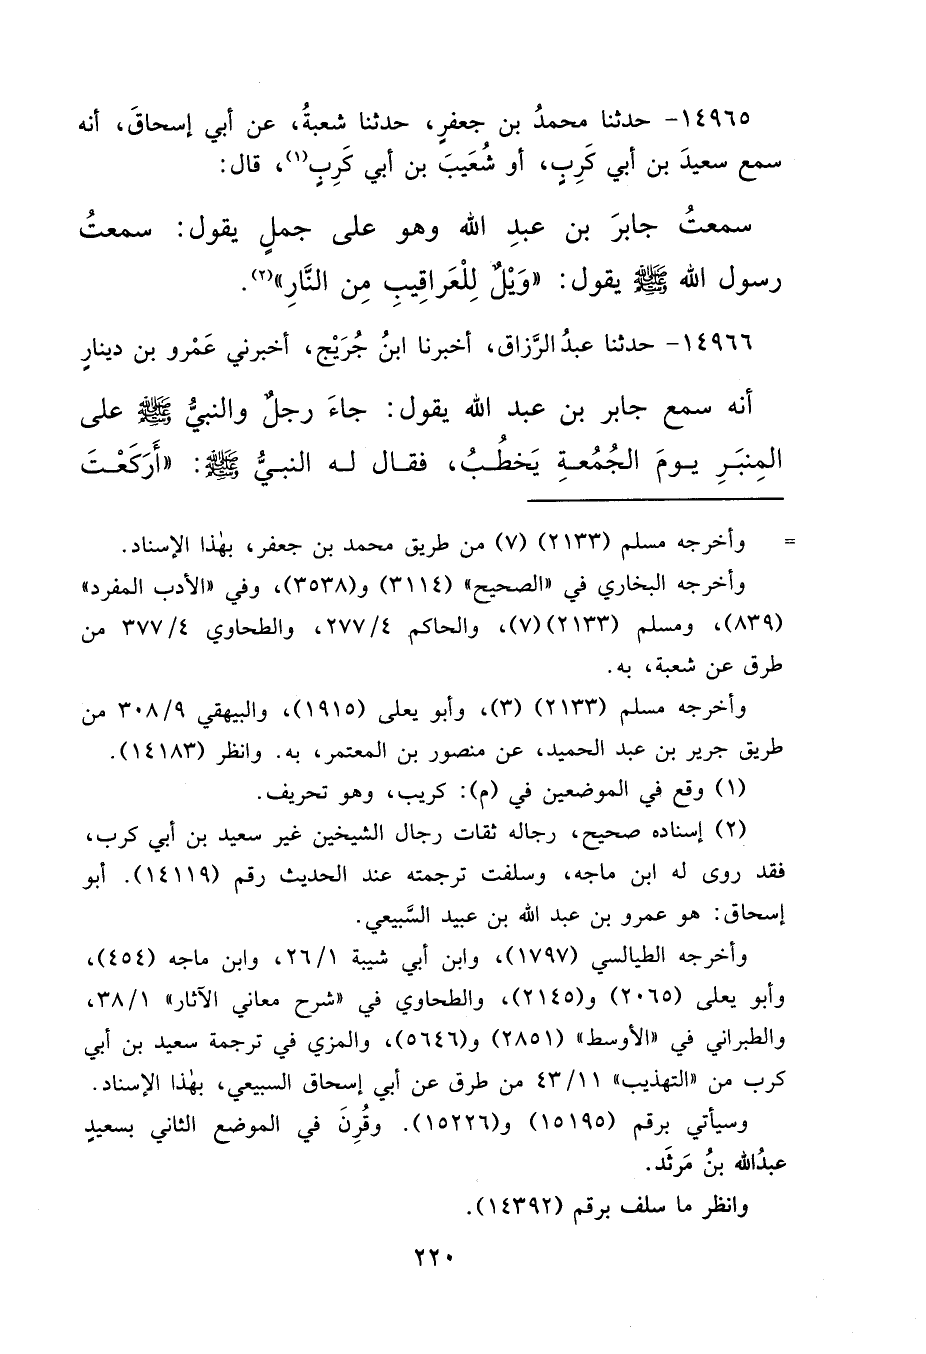 ١٤٩٦٥- حدثنا محمدُ بن جعفرٍ، حدثنا شعبةُ، عن أبي إسحاقَ، أنه
سمع سعيدَ بن أبي كَرِبٍ، أو شُعَيبَ بن أبي كَرِبٍ(١)، قال:
سمعتُ جابرَ بن عبدِ الله وهو على جملٍ يقول: سمعتُ
رسول الله ﷺ يقول: «وَيْلٌ لِلْعَراقِيبِ مِن النَّارِ»(٢).
١٤٩٦٦- حدثنا عبدُ الرَّزاق، أخبرنا ابنُ جُرَيْج، أخبرني عَمْرو بن دينارٍ
أنه سمع جابر بن عبد الله يقول: جاءَ رجلٌ والنبيُّ ﷺ على
المِنبَرِ يومَ الجُمُعةِ يَخطُبُ، فقال له النبيُّ ﷺ: «أَرَكَعْتَ
= وأخرجه مسلم (٢١٣٣) (٧) من طريق محمد بن جعفر، بهٰذا الإسناد.
وأخرجه البخاري في «الصحيح» (٣١١٤) و(٣٥٣٨)، وفي «الأدب المفرد»
(٨٣٩)، ومسلم (٢١٣٣)(٧)، والحاكم ٢٧٧/٤، والطحاوي ٣٧٧/٤ من
طرق عن شعبة، به.
وأخرجه مسلم (٢١٣٣) (٣)، وأبو يعلى (١٩١٥)، والبيهقي ٣٠٨/٩ من
طريق جرير بن عبد الحميد، عن منصور بن المعتمر، به. وانظر (١٤١٨٣).
(١) وقع في الموضعين في (م): كريب، وهو تحريف.
(٢) إسناده صحيح، رجاله ثقات رجال الشيخين غير سعيد بن أبي كرب،
فقد روى له ابن ماجه، وسلفت ترجمته عند الحديث رقم (١٤١١٩). أبو
إسحاق: هو عمرو بن عبد الله بن عبيد السَّبيعي.
وأخرجه الطيالسي (١٧٩٧)، وابن أبي شيبة ٢٦/١، وابن ماجه (٤٥٤)،
وأبو يعلى (٢٠٦٥) و(٢١٤٥)، والطحاوي في «شرح معاني الآثار» ٣٨/١،
والطبراني في «الأوسط» (٢٨٥١) و(٥٦٤٦)، والمزي في ترجمة سعيد بن أبي
كرب من «التهذيب» ٤٣/١١ من طرق عن أبي إسحاق السبيعي، بهٰذا الإسناد.
وسيأتي برقم (١٥١٩٥) و(١٥٢٢٦). وقُرِنَ في الموضع الثاني بسعيدٍ
عبدُالله بنُ مَرثَد.
وانظر ما سلف برقم (١٤٣٩٢).
٢٢٠